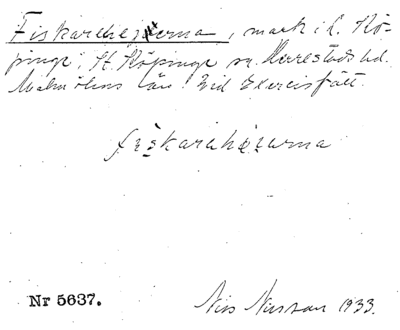 Fiskarehezerna, mark i L. Kö-
pinge, St. Köpinge sn. Herrestads hd.
Malmöhus län. Vid Exercisfält.
fɩskarehezerna
Nr 5637.
Nils Nilsson 1933.